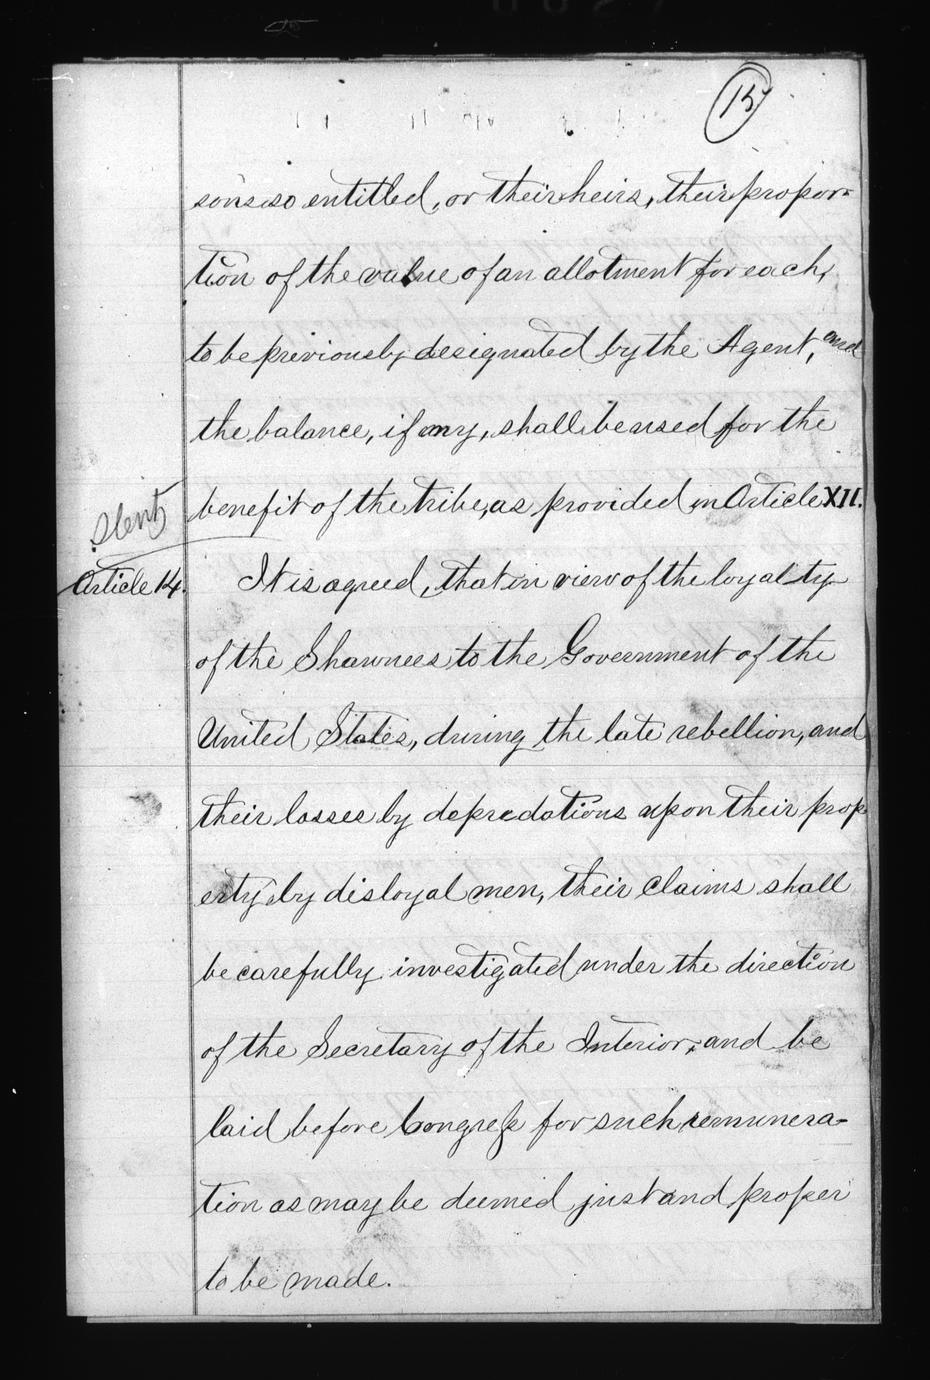 15
sons so entitled, or their heirs, their propor-
tion of the value of an allotment for each,
to be previously designated by the Agent, and
the balance, if any, shall be used for the
benefit of the tribe, as provided in Article XII.
Article 14.
It is agreed, that in view of the loyalty
of the Shawnees to the Government of the
United States, during the late rebellion, and
their losses by depredations upon their prop
erty by disloyal men, their claims shall
be carefully investigated under the direction
of the Secretary of the Interior, and be
laid before Congress for such remunera-
tion as may be deemed just and proper
to be made.